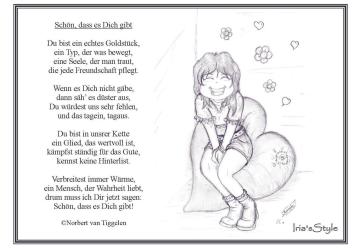 Schön, dass es Dich gibt
Du bist ein echtes Goldstück,
ein Typ, der was bewegt,
eine Seele, der man traut,
die jede Freundschaft pflegt.
Wenn es Dich nicht gäbe,
dann säh' es düster aus,
Du würdest uns sehr fehlen,
und das tagein, tagaus.
Du bist in unsrer Kette
ein Glied, das wertvoll ist,
kämpfst ständig für das Gute,
kennst keine Hinterlist.
Verbreitest immer Wärme,
ein Mensch, der Wahrheit liebt,
drum muss ich Dir jetzt sagen:
Schön, dass es Dich gibt!
©Norbert van Tiggelen
Iria'sStyle